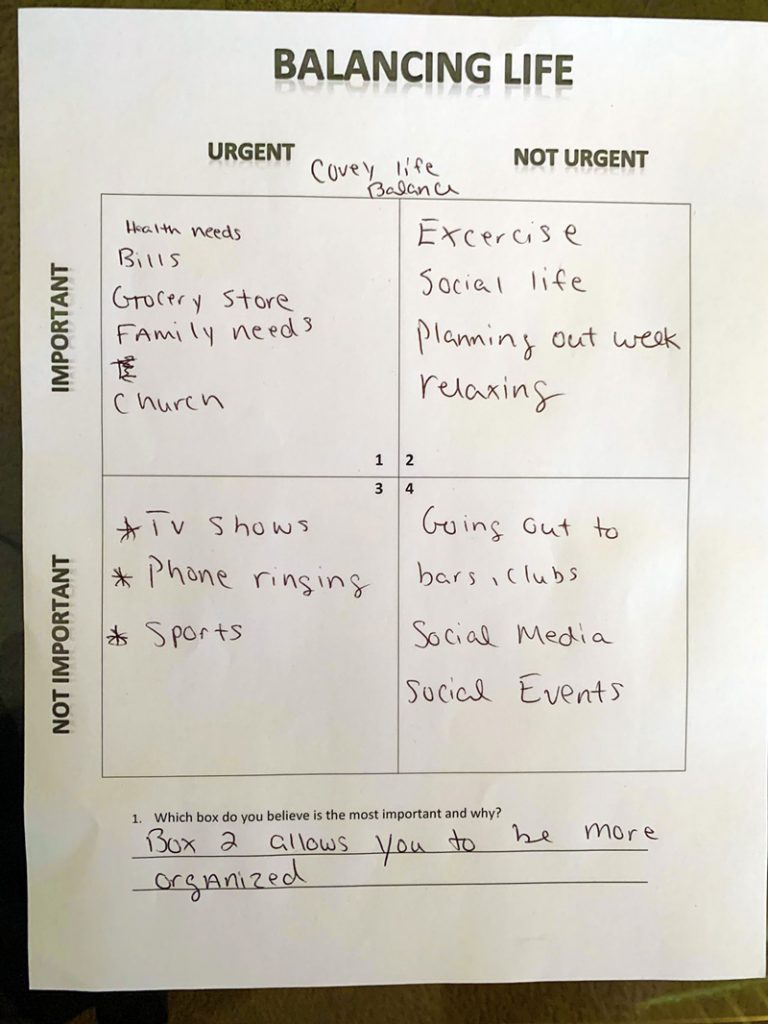 BALANCING LIFE
URGENT
NOT URGENT
Covey life
Balance
IMPORTANT
Health needs
Bills
Grocery store
Family needs
Church
1
Excercise
Social life
Planning out week
relaxing
2
NOT IMPORTANT
3
* Tv shows
* Phone ringing
* Sports
4
Going out to
bars, clubs
Social Media
Social Events
1. Which box do you believe is the most important and why?
Box 2 allows you to be more
organized